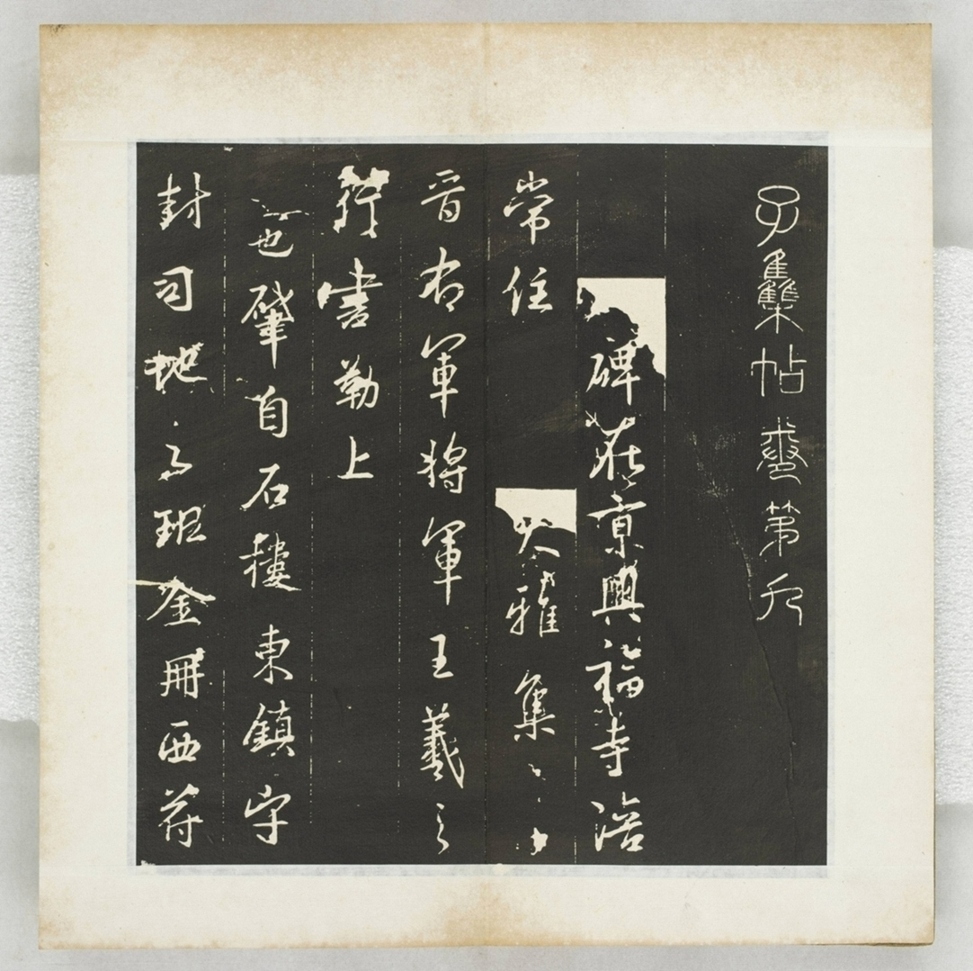 子雧帖卷第九
碑在京興福寺陪
常住 大雅集
晉右軍將軍王羲之
行書勒上
也肇自石樓東鎮守
封司地之班金冊西苻